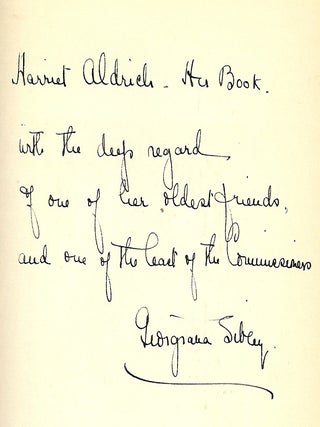 Harriet Aldrich - Her Book.
with the deep regard
of one of her oldest friends,
and one of the least of the Commissioners
Georgiana Sibley.